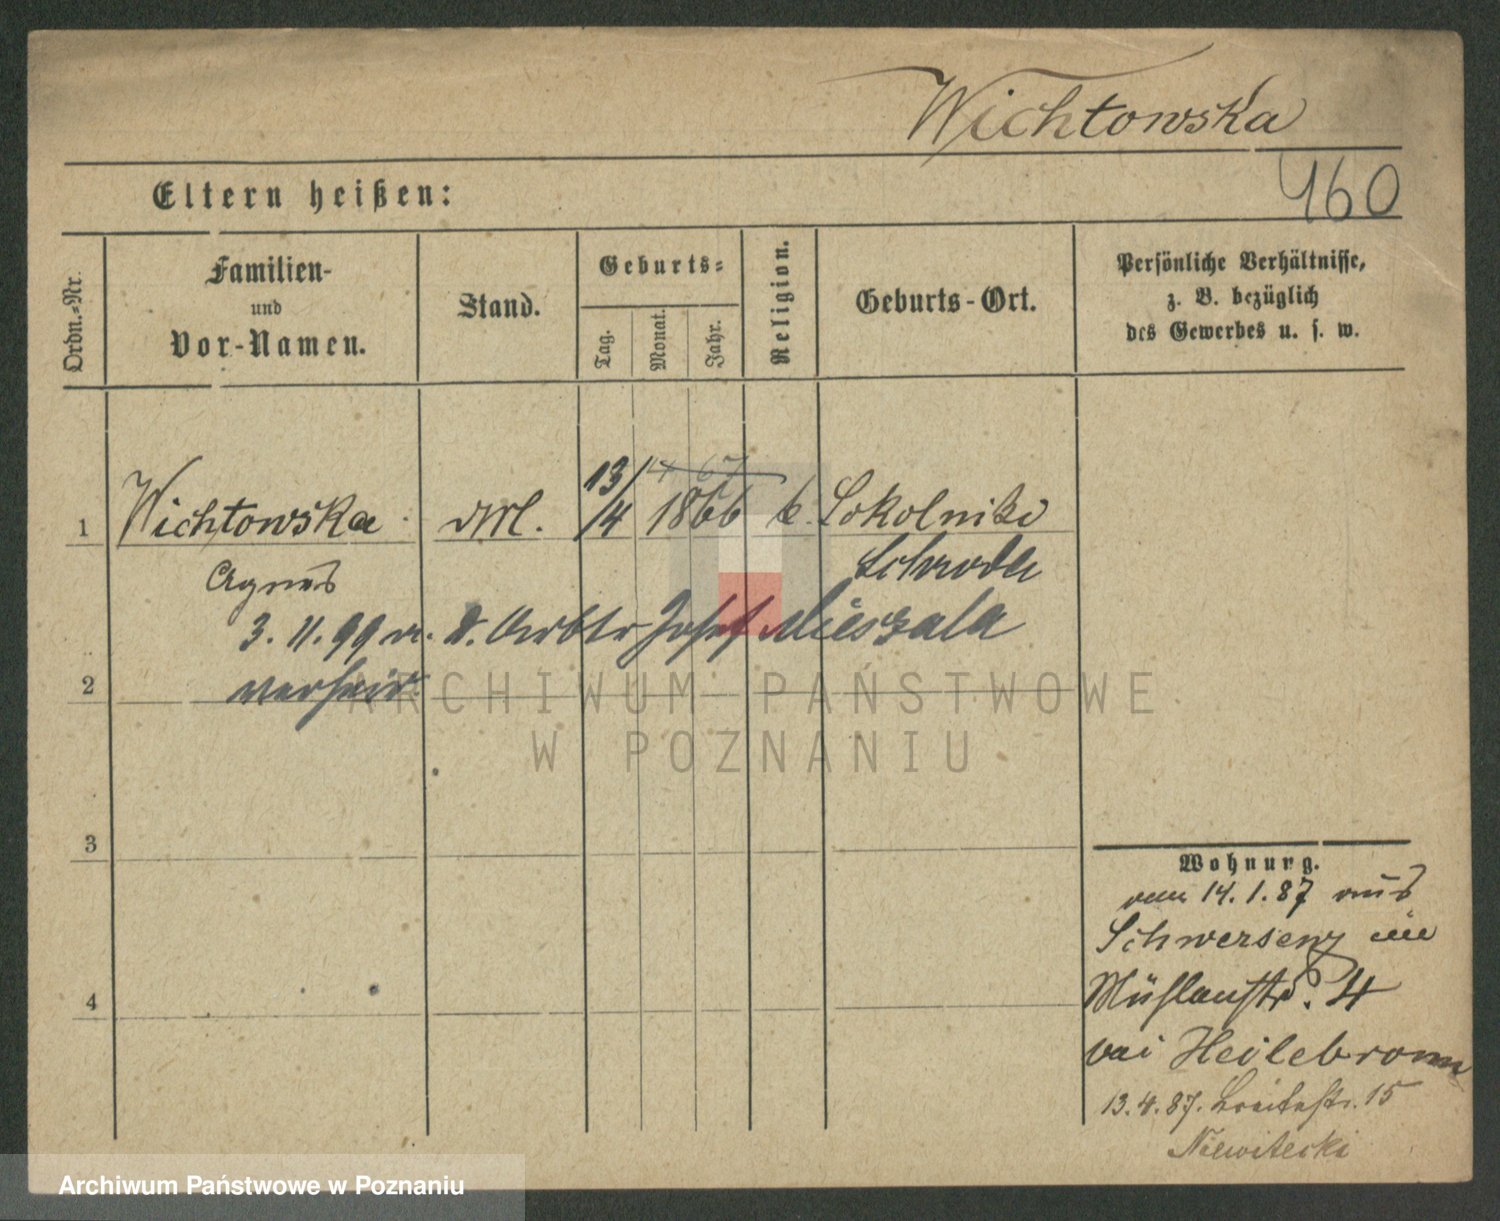 Wichtowska
460
Eltern heißen:
Ordn.-Nr.
Familien-
und
Vor-Namen.
Stand.
Geburts-
Tag.
Monat.
Jahr.
Religion.
Geburts-Ort.
Persönliche Verhältnisse,
z. B. bezüglich
des Gewerbes u. s. w.
1 Wichtowska 13/4 1866 k. Sokolniki
Agnes Schroda
3. 11. 99 m. d. Arbtr Josef Mieszala
2 verheir.
ARCHIWUM PAŃSTWOWE
W POZNANIU
3
4
Wohnung.
vom 14. 1. 87 aus
Schwersenz in
Mühlenstr. 4
bei Heilebronn
13. 4. 87. Breitestr. 15
Niewitecki
Archiwum Państwowe w Poznaniu